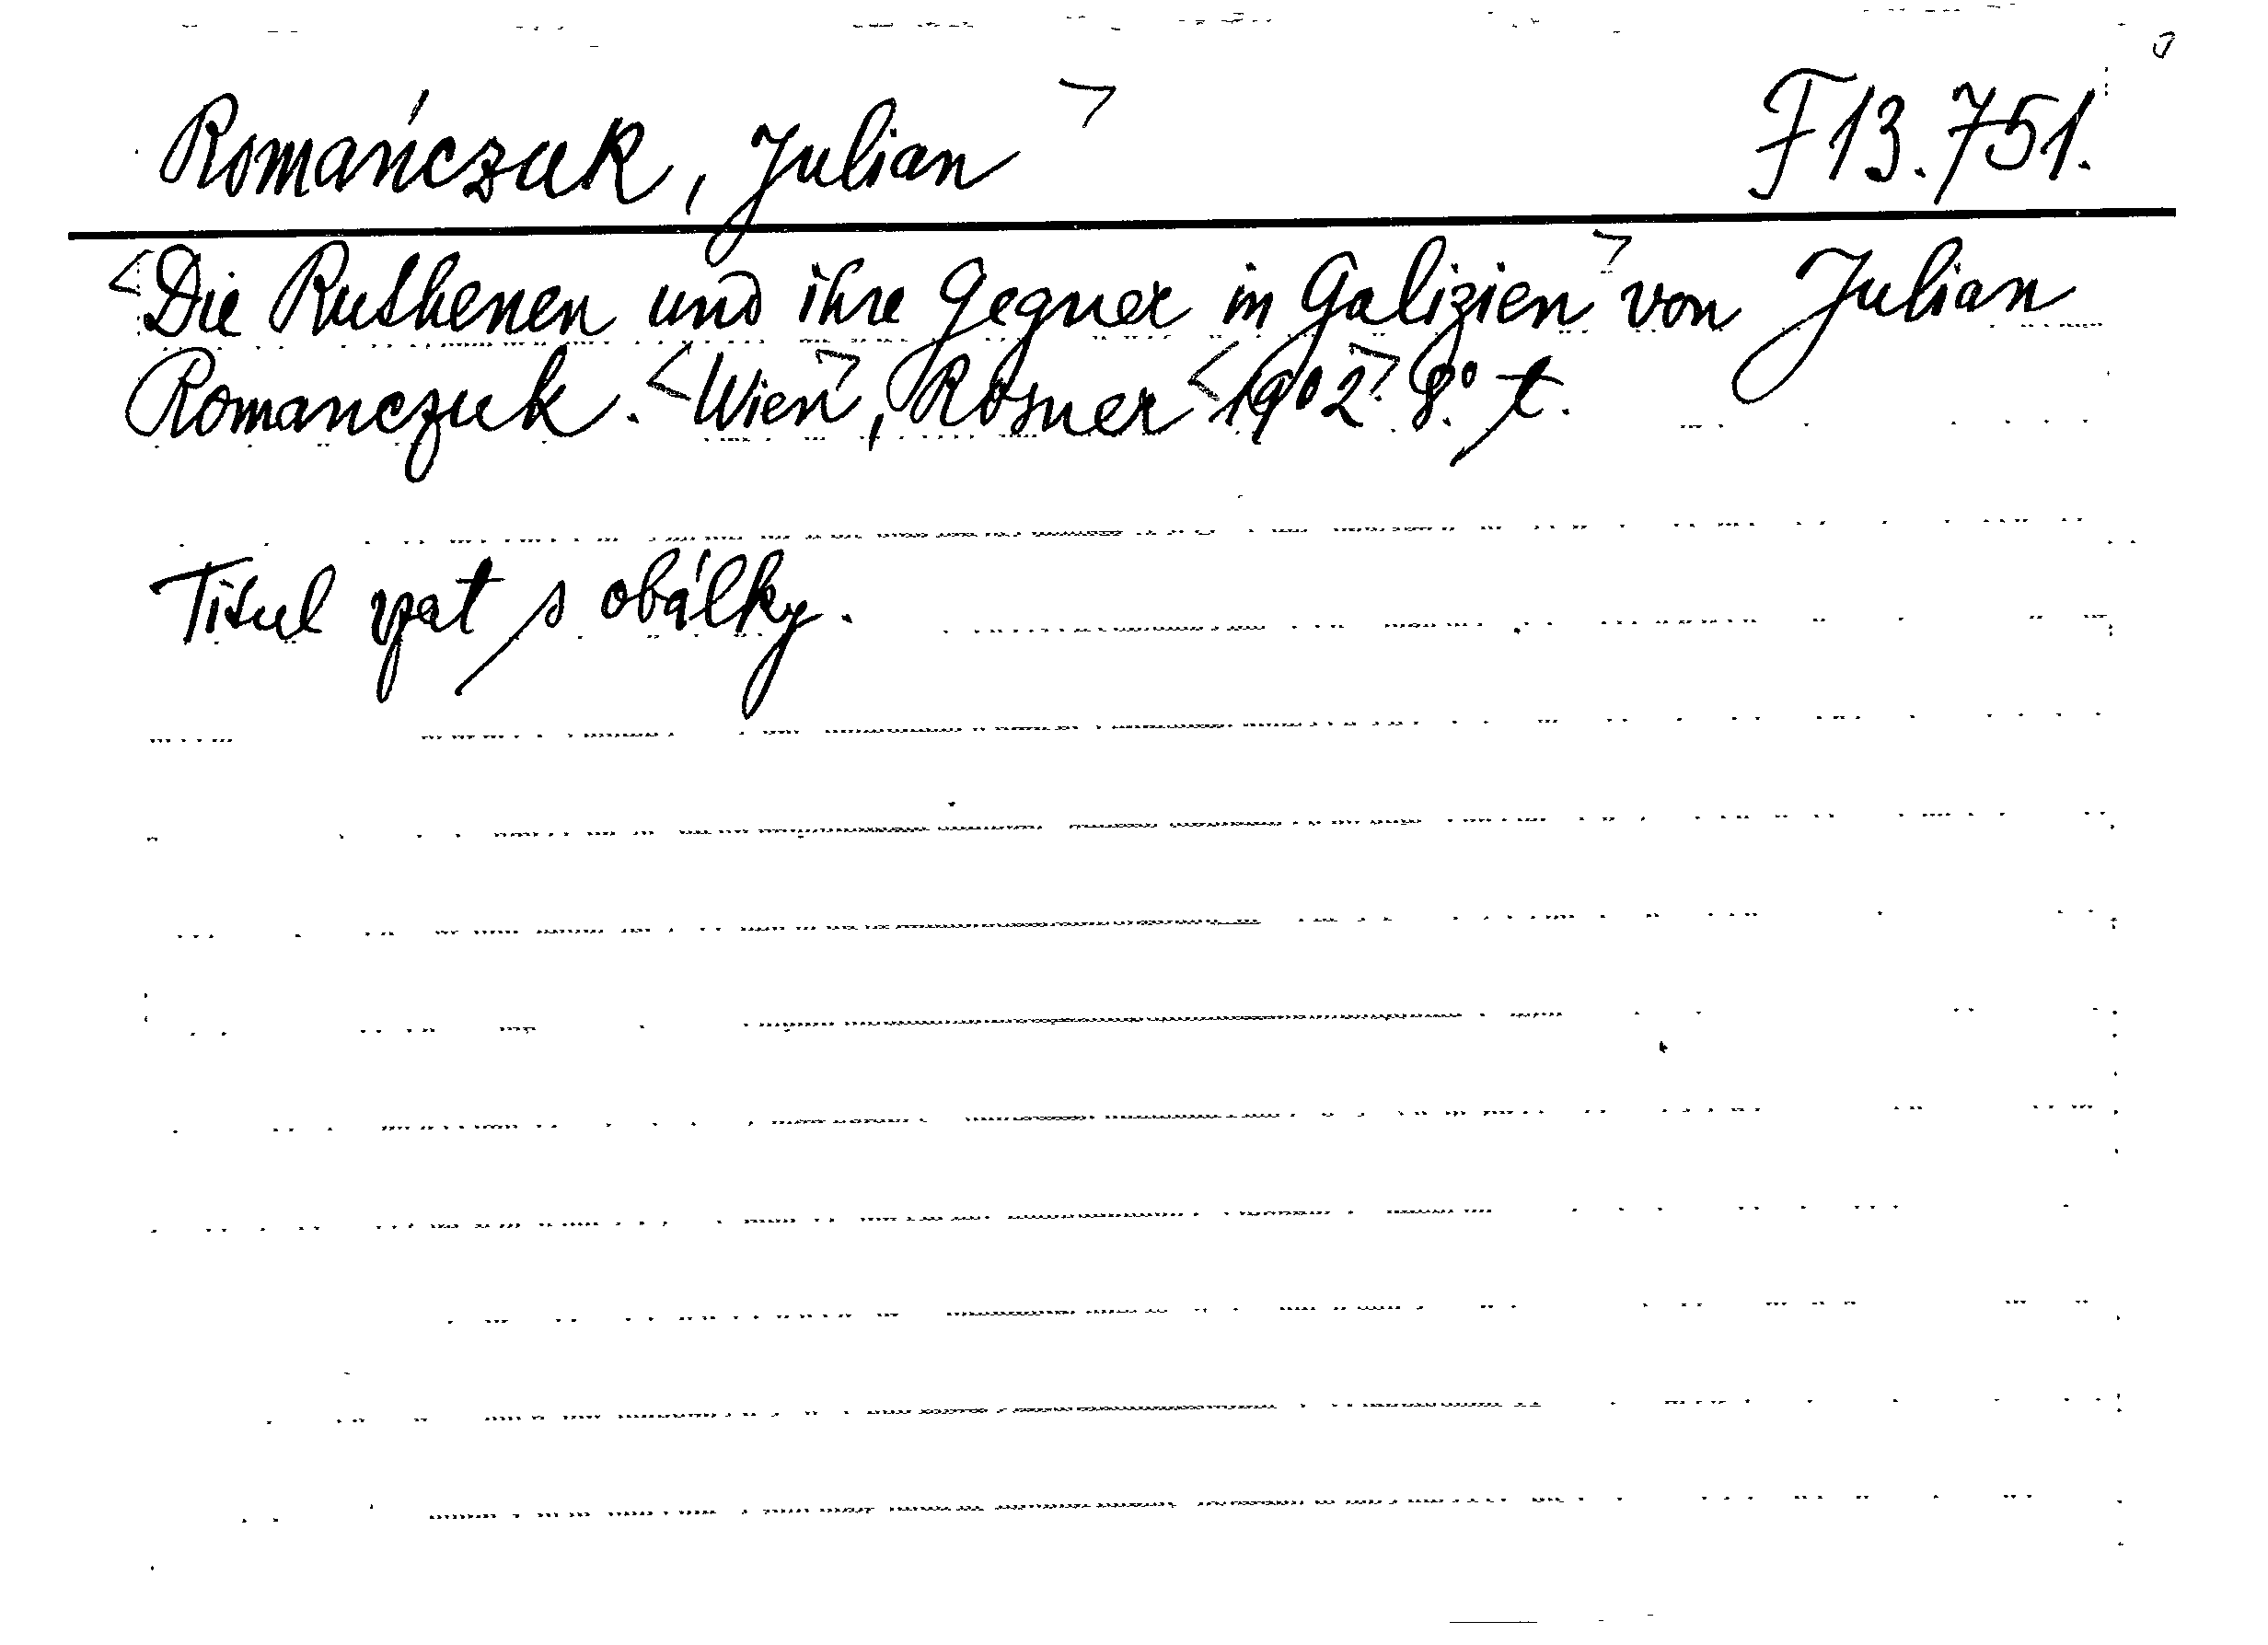 Romańczuk, Julian > F 13.751.
<Die Ruthenen und ihre Gegner in Galizien> von Julian
Romanczuk. <Wien>, Rosner <1902> 8.° t.
Titul vzat s obálky.